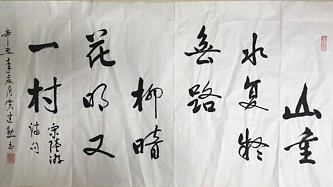 山重
水复疑
無路
柳暗
花明又
一村
宋陸游
诗句
辛丑